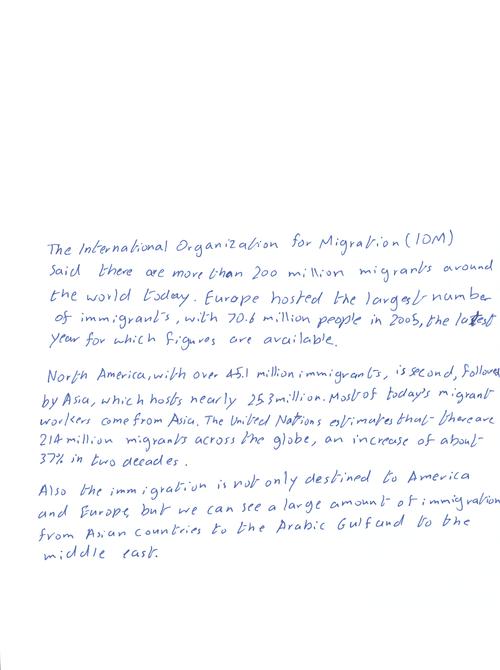 The International Organization for Migration (IOM)
Said there are more than 200 million migrants around
the world today. Europe hosted the largest number
of immigrants, with 70.6 million people in 2005, the latest
year for which figures are available.
North America, with over 45.1 million immigrants, is second, followed
by Asia, which hosts nearly 25.3 million. Most of today's migrant
workers come from Asia. The United Nations estimates that there are
214 million migrants across the globe, an increase of about
37% in two decades.
Also the immigration is not only destined to America
and Europe, but we can see a large amount of immigration
from Asian countries to the Arabic Gulf and to the
middle east.